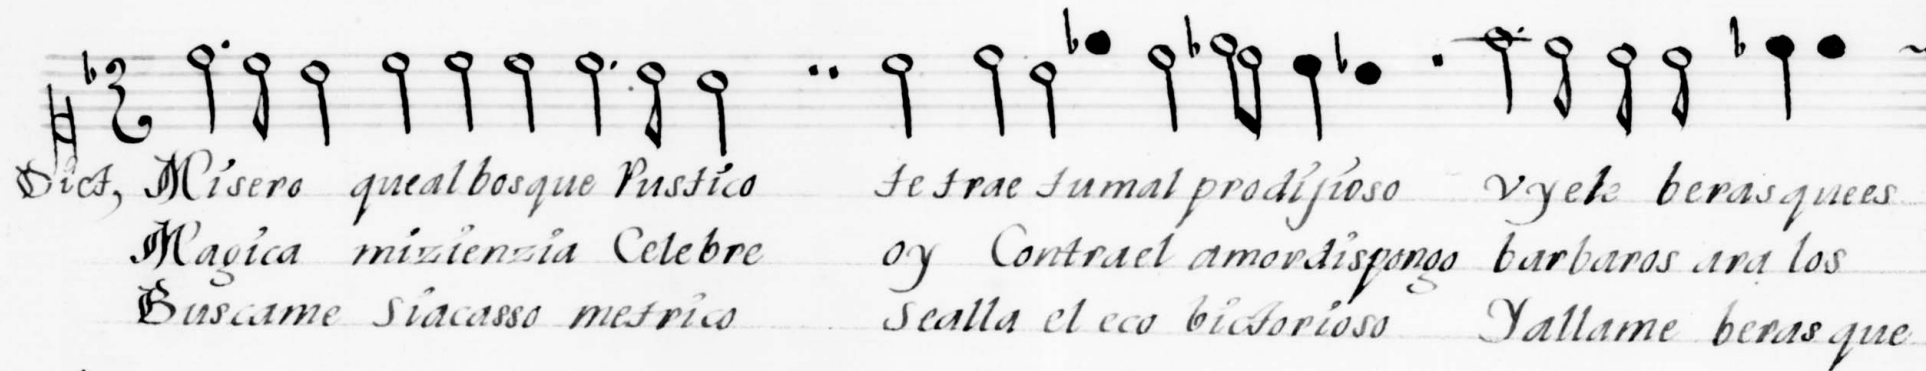 Dict, Misero quealbosque Rustico te trae tumal prodijioso vyele beras quees
Magica mizienzia Celebre oy Contrael amordispongo barbaros ara los
Buscame siacasso metrico sealla el eco bictorioso Yallame beras que